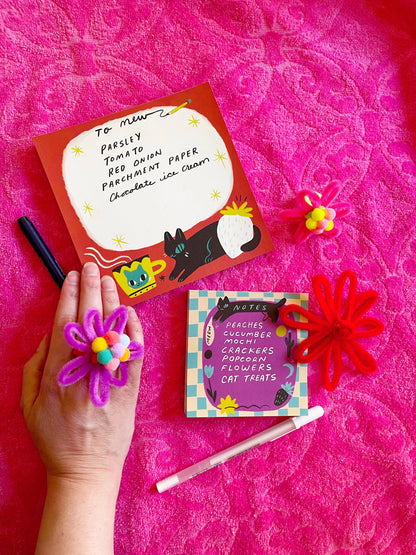 To mew
PARSLEY
TOMATO
RED ONION
PARCHMENT PAPER
Chocolate ice cream
NOTES
PEACHES
CUCUMBER
MOCHI
CRACKERS
POPCORN
FLOWERS
CAT TREATS